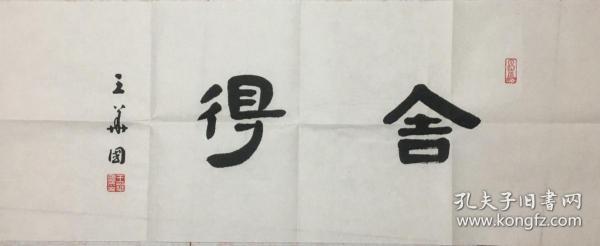 舍得
王華國
孔夫子旧书网
www.kongfz.com